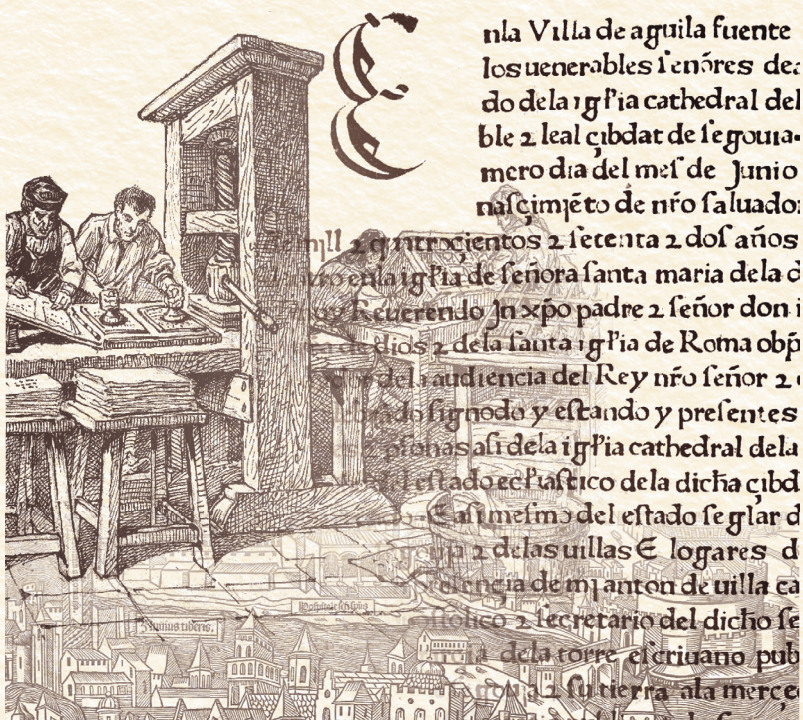 E
nla Villa de aguila fuente
los uenerables ſenõres de
do dela igłia cathedral del
ble ꝛ leal çibdat de ſegouia
mero dia del meſ de Junio
naſçimiẽto de nr̃o ſaluado
mill ꝛ quatroçientos ꝛ ſetenta ꝛ doſ años
enla igłia de ſeñora ſanta maria dela
muy Reuerendo Jn xp̃o padre ꝛ ſeñor don
de dios ꝛ dela ſanta igłia de Roma obp̃
dela audiencia del Rey nr̃o ſeñor ꝛ
ſignodo y eſtando y preſentes
pſonas aſi dela igłia cathedral dela
eſtado ecłiaſtico dela dicha çibd
E aſi meſmo del eſtado ſeglar d
ꝛ delas uillas E logares d
de mj anton de uilla ca
ꝛ ſecretario del dicho ſe
dela torre eſcriuano pub
ꝛ ſu tierra ala merçe